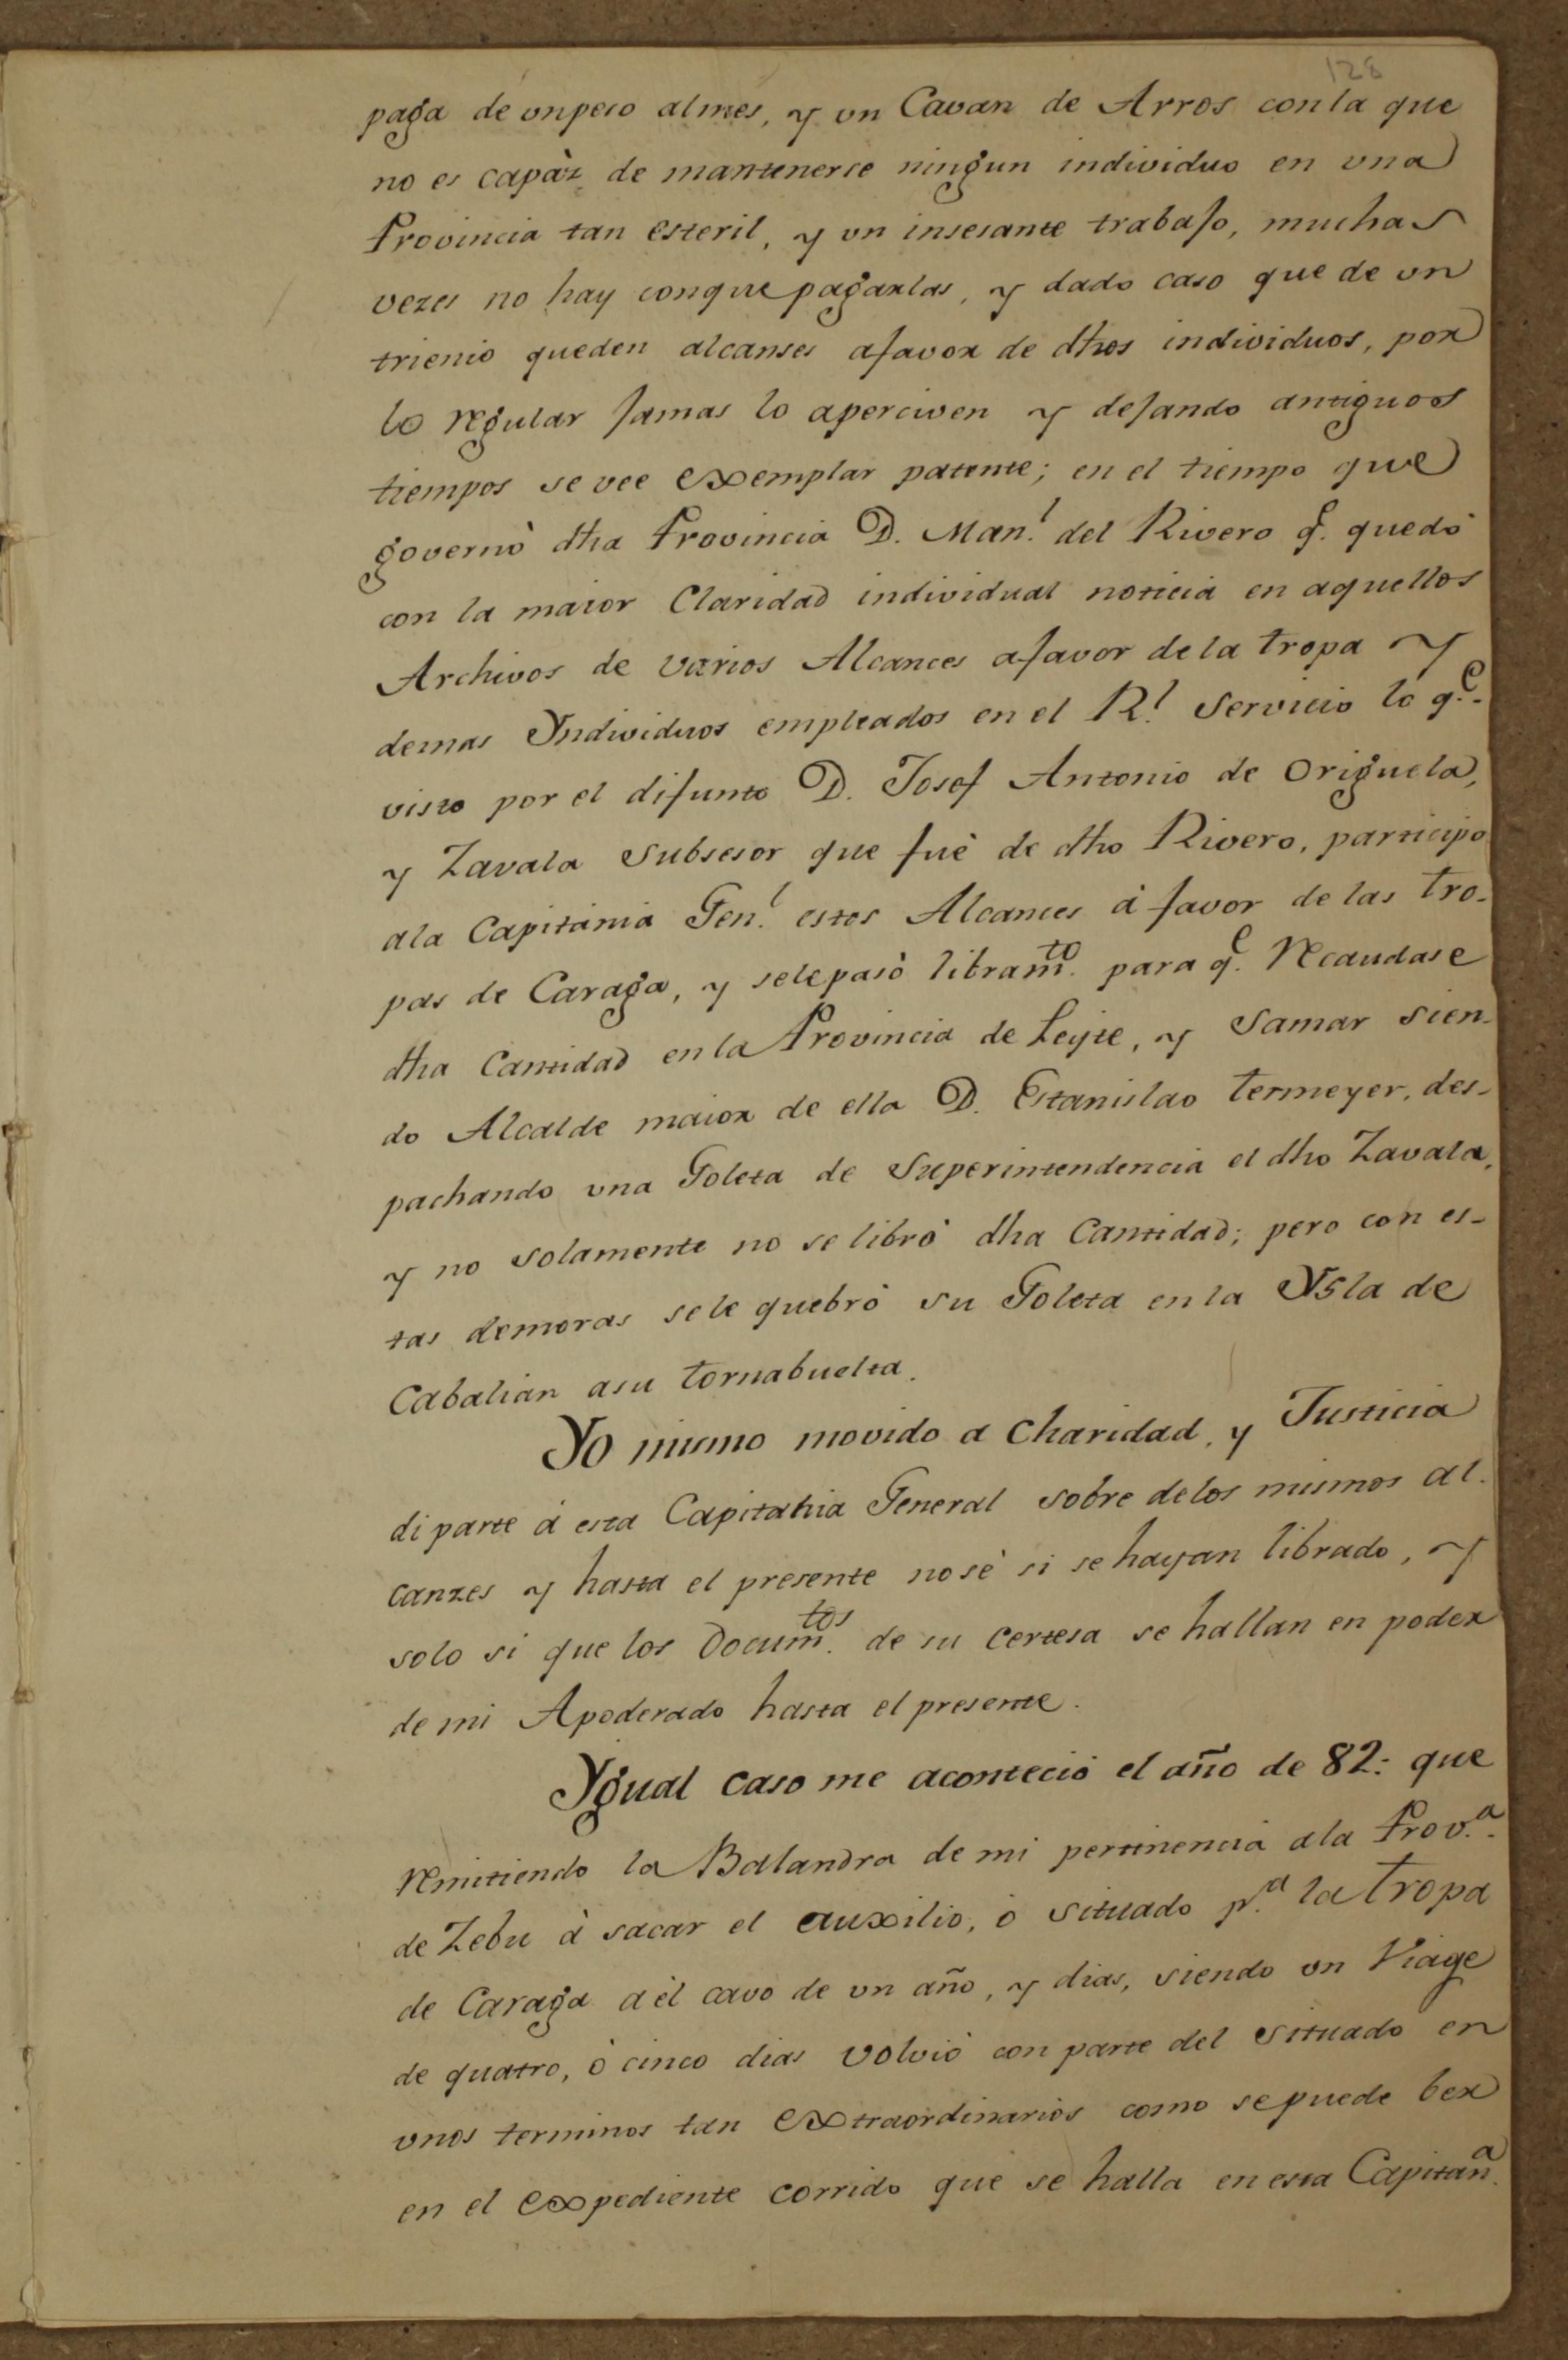 128
paga de vn peso al mes, y vn Cavan de Arros con la que
no es capàz de mantenerse ningun individuo en vna
Provincia tan esteril, y vn insesante trabajo, muchas
vezes no hay conque pagarlas, y dado caso que de vn
trienio queden alcanses afavor de dhos individuos, por
lo regular jamas lo aperciven y dejando antiguos
tiempos se vee exemplar patente; en el tiempo que
governò dha Provincia D. Man.l del Rivero q.e quedò
con la maior Claridad individual noticia en aquellos
Archivos de varios Alcances afavor de la tropa y
demas Yndividuos empleados en el R.l Servicio lo q.e
visto por el difunto D. Josef Antonio de Origuela,
y Zavala Subsesor que fuè de dho Rivero, participo
ala Capitania Gen.l estos Alcances à favor de las Tro-
pas de Caraga, y sele pasò libram.to para q.e Recaudase
dha Cantidad en la Provincia de Leyte, y Samar sien-
do Alcalde maior de ella D. Estanislao Termeyer, des-
pachando vna Goleta de Superintendencia el dho Zavala,
y no solamente no se librò dha Cantidad; pero con es-
tas demoras sele quebrò su Goleta en la Ysla de
Cabalian asu tornabuelta.
Yo mismo movido a Charidad, y Justicia
di parte à esta Capitania General sobre delos mismos al-
canzes y hasta el presente no sè si se hayan librado, y
solo si que los Docum.tos de su certesa se hallan en poder
de mi Apoderado hasta el presente.
Ygual caso me aconteciò el año de 82: que
Remitiendo la Balandra de mi pertinencia ala Prov.a
de Zebu à sacar el auxilio, ò situado p.a la Tropa
de Caraga a èl cavo de vn año, y dias, siendo vn Viage
de quatro, ò cinco dias volviò con parte del situado en
vnos terminos tan extraordinarios como se puede ber
en el expediente corrido que se halla en esta Capitan.a